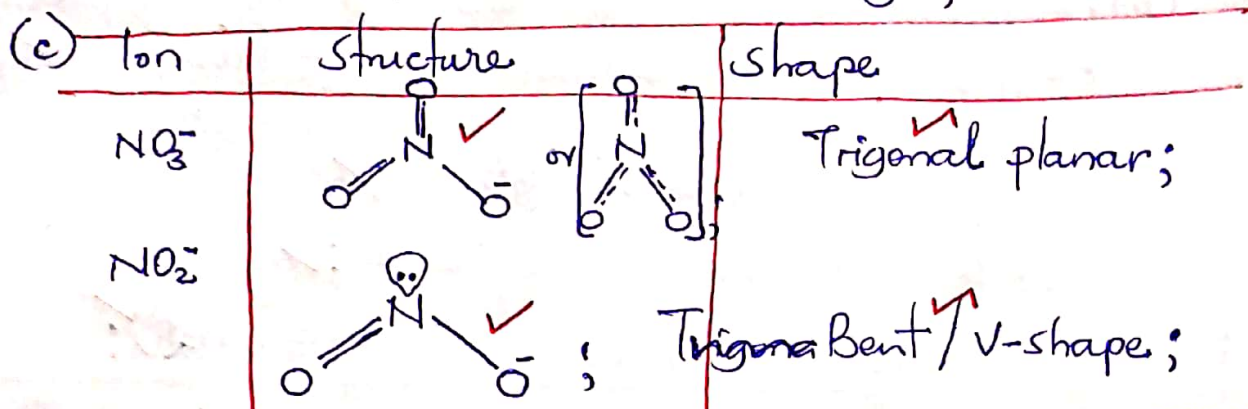 (c) Ion Structure Shape
NO₃⁻ O N O O⁻ or [O N O O]; Trigonal planar;
NO₂⁻ N O O⁻; Bent / V-shape;